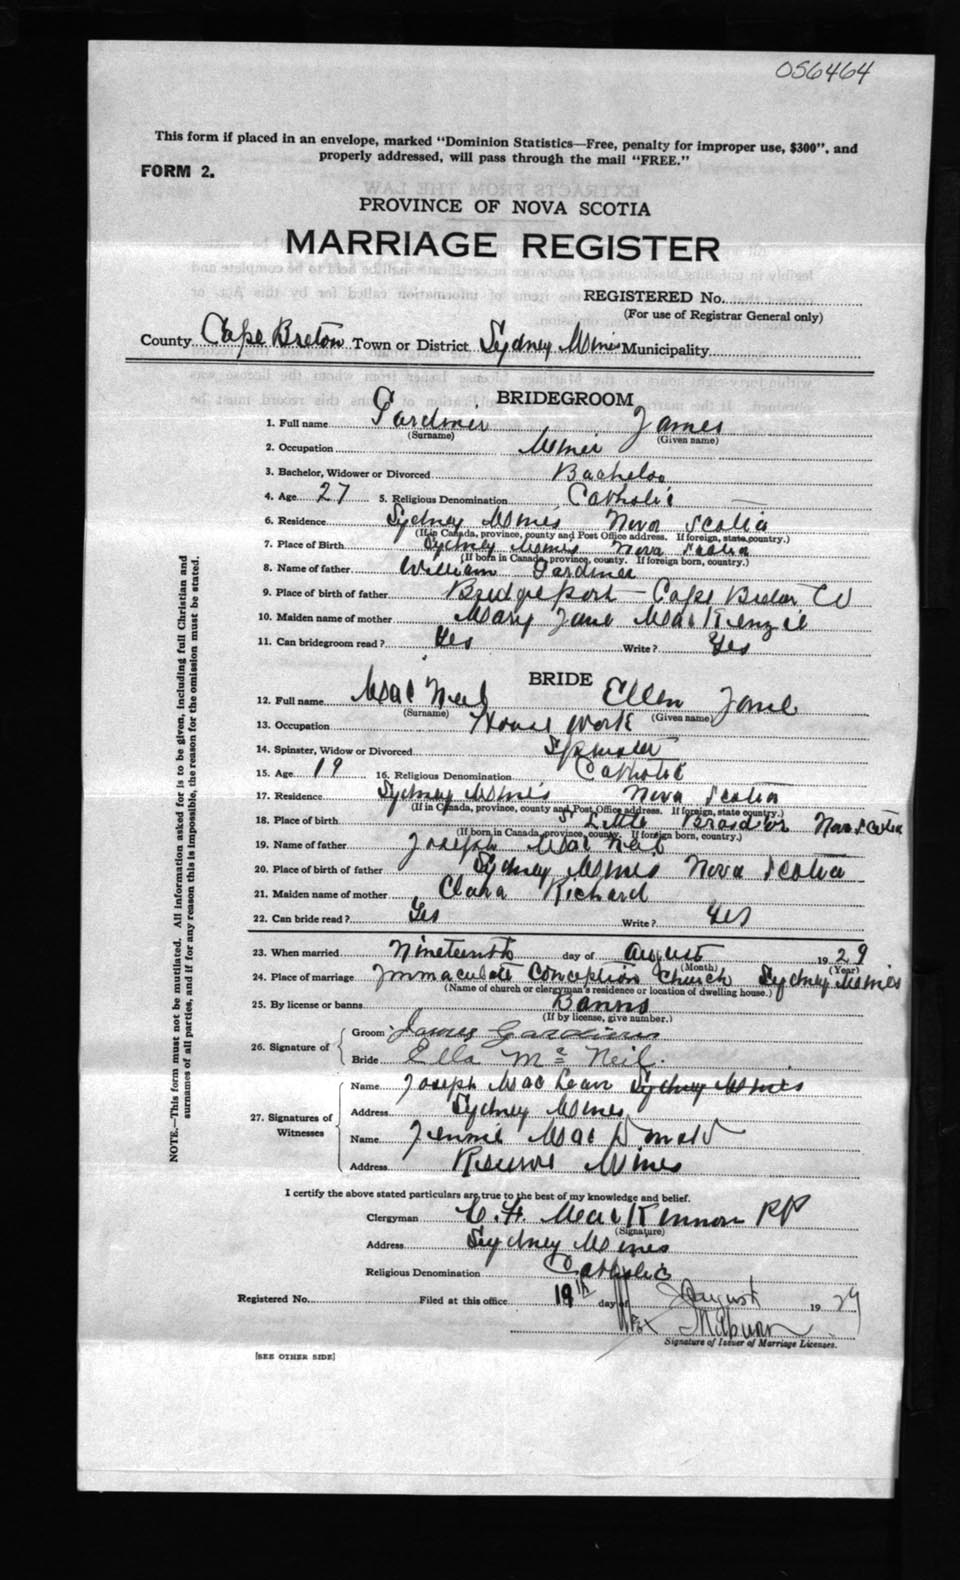 056464
This form if placed in an envelope, marked "Dominion Statistics—Free, penalty for improper use, $300", and
properly addressed, will pass through the mail "FREE."
FORM 2.
PROVINCE OF NOVA SCOTIA
MARRIAGE REGISTER
REGISTERED No.
(For use of Registrar General only)
County Cape Breton Town or District Sydney Mines Municipality
BRIDEGROOM
1. Full name Gardiner James
(Surname) (Given name)
2. Occupation Miner
3. Bachelor, Widower or Divorced Bachelor
4. Age 27 5. Religious Denomination Catholic
6. Residence Sydney Mines Nova Scotia
(If in Canada, province, county and Post Office address. If foreign, state country.)
7. Place of Birth Sydney Mines Nova Scotia
(If born in Canada, province, county. If foreign born, country.)
8. Name of father William Gardiner
9. Place of birth of father Bridgeport — Cape Breton Co
10. Maiden name of mother Mary Jane MacKenzie
11. Can bridegroom read? Yes Write? Yes
BRIDE
12. Full name MacNeil Ellen Jane
(Surname) (Given name)
13. Occupation House work
14. Spinster, Widow or Divorced Spinster
15. Age 19 16. Religious Denomination Catholic
17. Residence Sydney Mines Nova Scotia
(If in Canada, province, county and Post Office address. If foreign, state country.)
18. Place of birth Little Bras d'or Nova Scotia
(If born in Canada, province, county. If foreign born, country.)
19. Name of father Joseph MacNeil
20. Place of birth of father Sydney Mines Nova Scotia
21. Maiden name of mother Clara Richard
22. Can bride read? Yes Write? Yes
23. When married Nineteenth day of August 1929
(Month) (Year)
24. Place of marriage Immaculate Conception Church Sydney Mines
(Name of church or clergyman's residence or location of dwelling house.)
25. By license or banns Banns
(If by license, give number.)
26. Signature of
Groom James Gardiner
Bride Ella McNeil.
27. Signatures of Witnesses
Name Joseph MacLean Sydney Mines
Address Sydney Mines
Name Jennie MacDonald
Address Reserve Mines
I certify the above stated particulars are true to the best of my knowledge and belief.
Clergyman MacKinnon PP
(Signature)
Address Sydney Mines
Religious Denomination Catholic
Registered No. Filed at this office 19th day of August 1929
Signature of Issuer of Marriage Licenses.
[SEE OTHER SIDE]
NOTE.—This form must not be mutilated. All information asked for is to be given, including full Christian and
surnames of all parties, and if for any reason this is impossible, the reason for the omission must be stated.